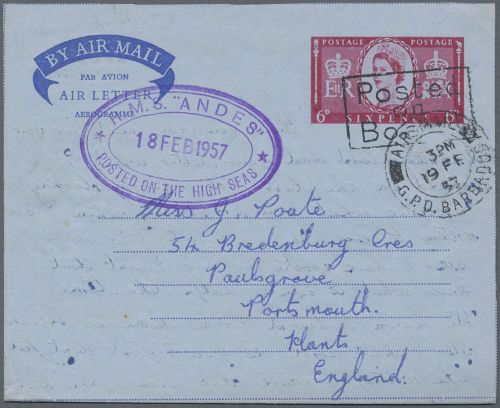 BY AIR MAIL
PAR AVION
AIR LETTER
AEROGRAMME
POSTAGE POSTAGE
E R
6D SIXPENCE 6D
Posted
on
Bo
"ANDES"
18 FEB 1957
POSTED ON THE HIGH SEAS
AIR
3PM
19 FE
57
G.P.O. BARBADOS
Miss J. Poate
54 Bredenbury Cres
Paulsgrove
Portsmouth.
Hants.
England.